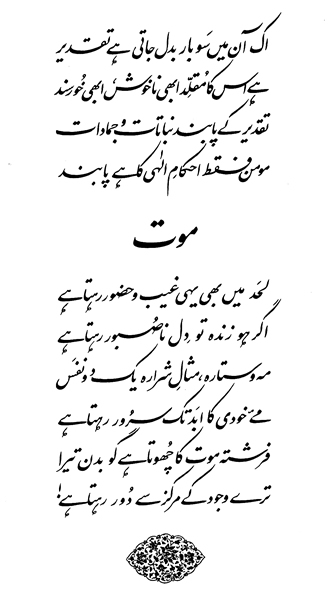 اک آن میں سَو بار بدل جاتی ہے تقدیر
ہے اس کا مُقلِّد ابھی ناخوش، ابھی خُورسند
تقدیر کے پابند نباتات و جمادات
مومن فقط احکامِ الٰہی کا ہے پابند
موت
لحَد میں بھی یہی غیب و حضور رہتا ہے
اگر ہو زندہ تو دِل ناصُبور رہتا ہے
مہ و ستارہ، مثالِ شرارہ یک دو نفَس
مےِ خودی کا ابَد تک سُرور رہتا ہے
فرشتہ موت کا چھُوتا ہے گو بدن تیرا
ترے وجود کے مرکز سے دُور رہتا ہے!